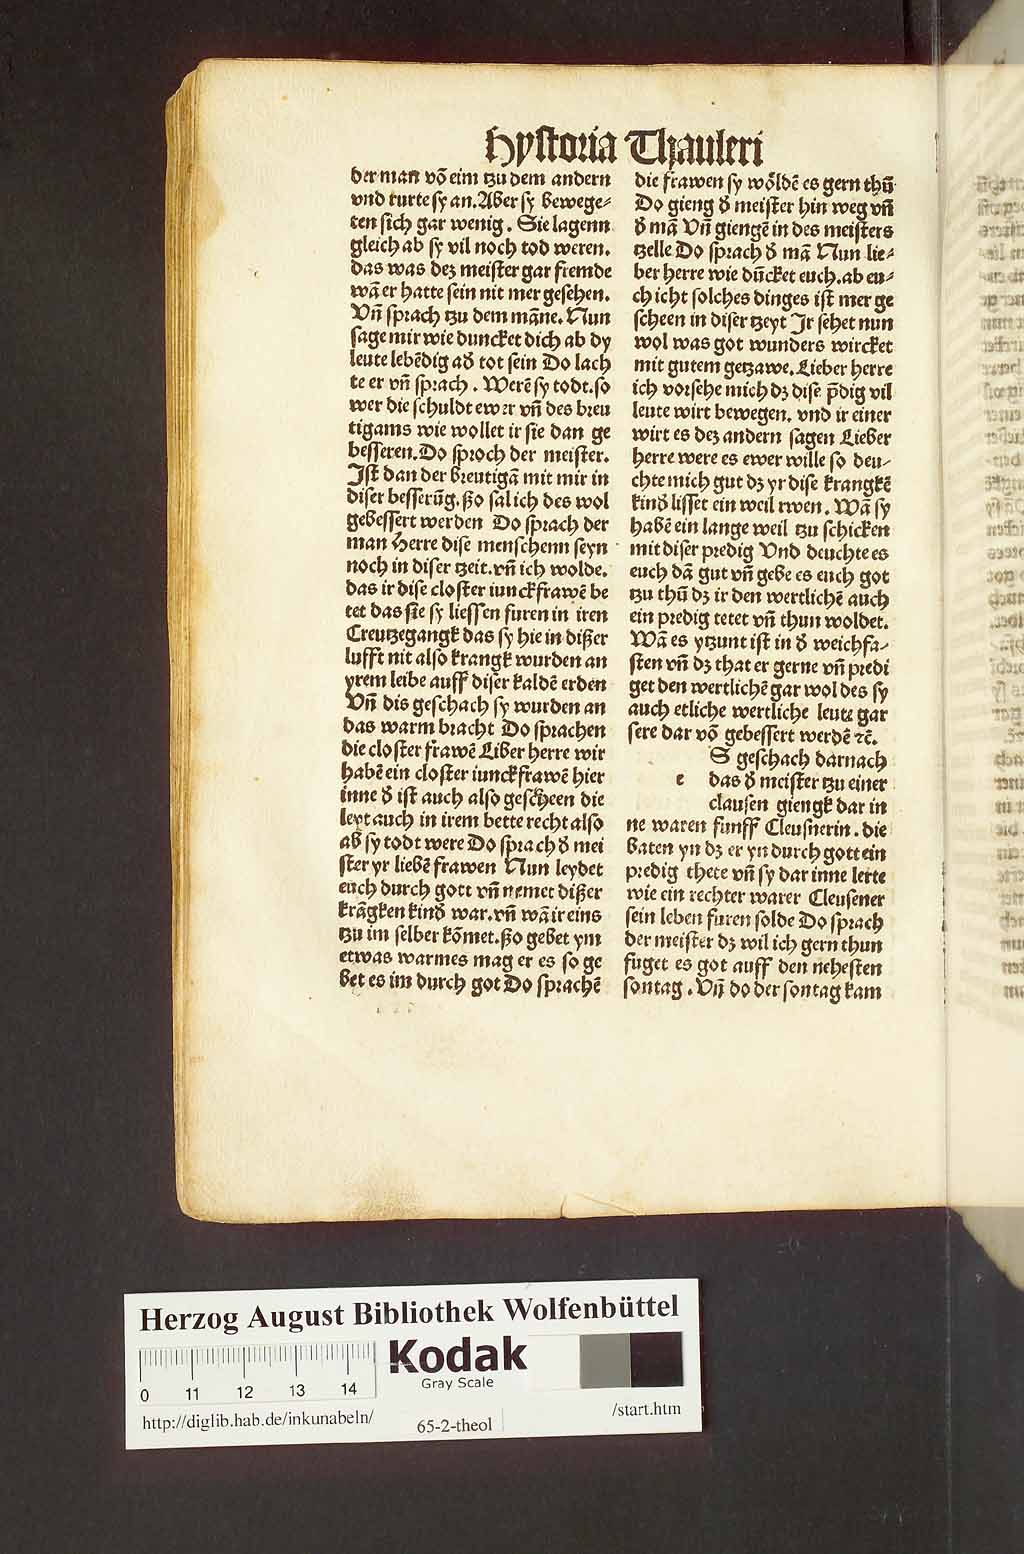 Hystoria Thauleri
der man võ eim tzu dem andern
vnd rurte sy an. Aber sy bewege⸗
ten sich gar wenig. Sie lagenn
gleich ab sy vil noch tod weren.
das was dez meister gar fremde
wã er hatte sein nit mer gesehen.
Vñ sprach tzu dem mãne. Nun
sage mir wie duncket dich ab dy
leute lebẽdig ađ tot sein Do lach
te er vñ sprach. Werẽ sy todt. so
wer die schuldt ewer vñ des breu
tigams wie wollet ir sie dan ge
besseren. Do sproch der meister.
Ist dan der breutigã mit mir in
diser besserũg. ßo sal ich des wol
gebessert werden Do sprach der
man Herre dise menschenn seyn
noch in diser tzeit. vñ ich wolde.
das ir dise closter iunckfrawẽ be
tet das sie sy liessen furen in iren
Creutzegangk das sy hie in dißer
lufft nit also krangk wurden an
yrem leibe auff diser kaldẽ erden
Vñ dis geschach sy wurden an
das warm bracht Do sprachen
die closter frawẽ Liber herre wir
habẽ ein closter iunckfrawẽ hier
inne đ ist auch also gescheen die
leyt auch in irem bette recht also
ab sy todt were Do sprach đ mei
ster yr liebẽ frawen Nun leydet
euch durch gott vñ nemet dißer
krãgken kinđ war. vñ wã ir eins
tzu im selber kõmet. ßo gebet ym
etwas warmes mag er es so ge
bet es im durch got Do sprachẽ
die frawen sy wõldẽ es gern thũ
Do gieng đ meister hin weg vñ
đ mã Vñ giengẽ in des meisters
tzelle Do sprach đ mã Nun lie⸗
ber herre wie dũcket euch. ab eu⸗
ch icht solches dinges ist mer ge
scheen in diser tzeyt Ir sehet nun
wol was got wunders wircket
mit gutem getzawe. Lieber herre
ich vorsehe mich dz dise p̃dig vil
leute wirt bewegen. vnd ir einer
wirt es dez andern sagen Lieber
herre were es ewer wille so deu⸗
chte mich gut dz yr dise krangkẽ
kinđ lisset ein weil rwen. Wã sy
habẽ ein lange weil tzu schicken
mit diser predig Vnd deuchte es
euch dã gut vñ gebe es euch got
tzu thũ dz ir den wertlichẽ auch
ein predig tetet vñ thun woldet.
Wã es ytzunt ist in đ weichfa⸗
sten vñ dz that er gerne vñ predi
get den wertlichẽ gar wol des sy
auch etliche wertliche leute gar
sere dar võ gebessert werdẽ ⁊c̃.
S geschach darnach
e das đ meister tzu einer
clausen giengk dar in
ne waren funff Cleusnerin. die
baten yn dz er yn durch gott ein
predig thete vñ sy dar inne lerte
wie ein rechter warer Cleusener
sein leben furen solde Do sprach
der meister dz wil ich gern thun
fuget es got auff den nehesten
sontag. Vñ do der sontag kam
Herzog August Bibliothek Wolfenbüttel
Kodak
Gray Scale
0 11 12 13 14
http://diglib.hab.de/inkunabeln/
65-2-theol
/start.htm